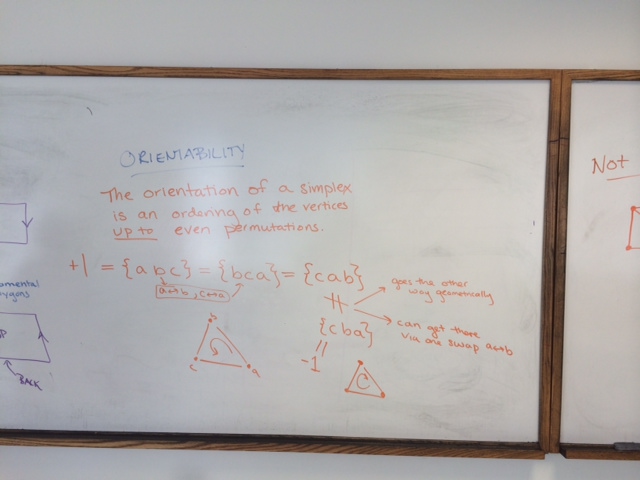 ORIENTABILITY
The orientation of a simplex
is an ordering of the vertices
up to even permutations.
+1 = {a b c} = {b c a} = {c a b}
a↔b, c↔a
goes the other
way geometrically
{c b a}
can get there
via one swap a↔b
-1
b
c
a
Not
BACK